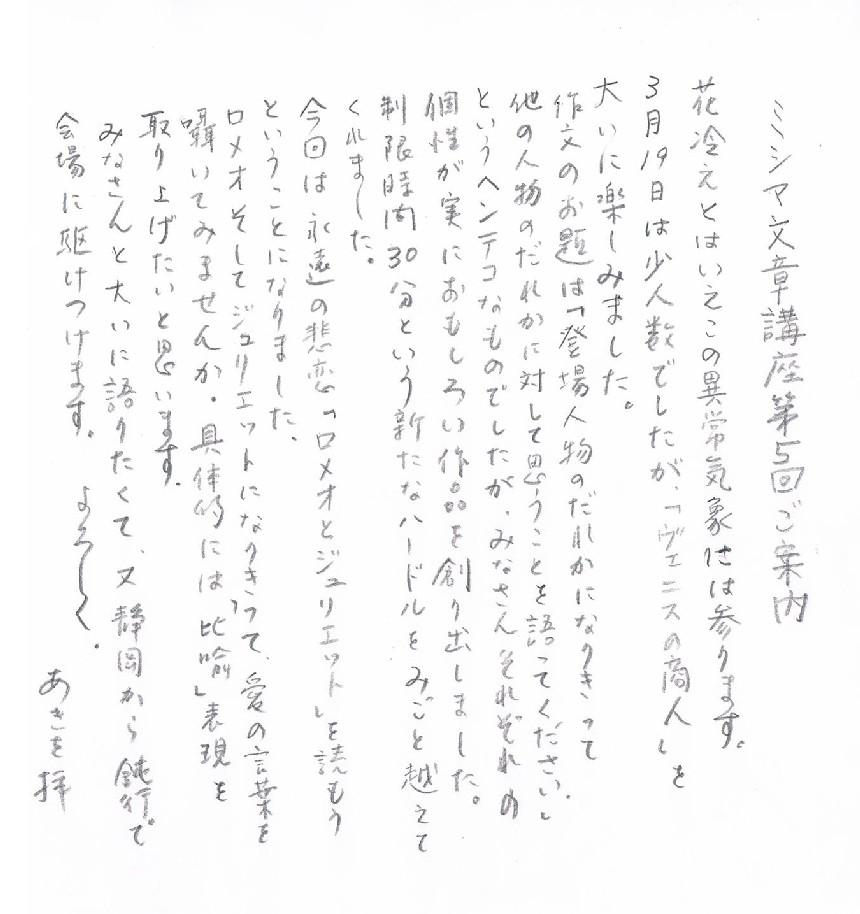 ミシマ文章講座第5回ご案内
花冷えとはいえこの異常気象には参ります。
3月19日は少人数でしたが、「ヴェニスの商人」を
大いに楽しみました。
作文のお題は「登場人物のだれかになりきって
他の人物のだれかに対して思うことを語ってください」
というヘンテコなものでしたが、みなさんそれぞれの
個性が実におもしろい作品を創り出しました。
制限時間30分という新たなハードルをみごと越えて
くれました。
今回は永遠の悲恋「ロメオとジュリエット」を読もう
ということになりました。
ロメオそしてジュリエットになりきって、愛の言葉を
囁いてみませんか。具体的には「比喩」表現を
取り上げたいと思います。
みなさんと大いに語りたくて、又静岡から鈍行で
会場に駆けつけます。よろしく。
あきを拝